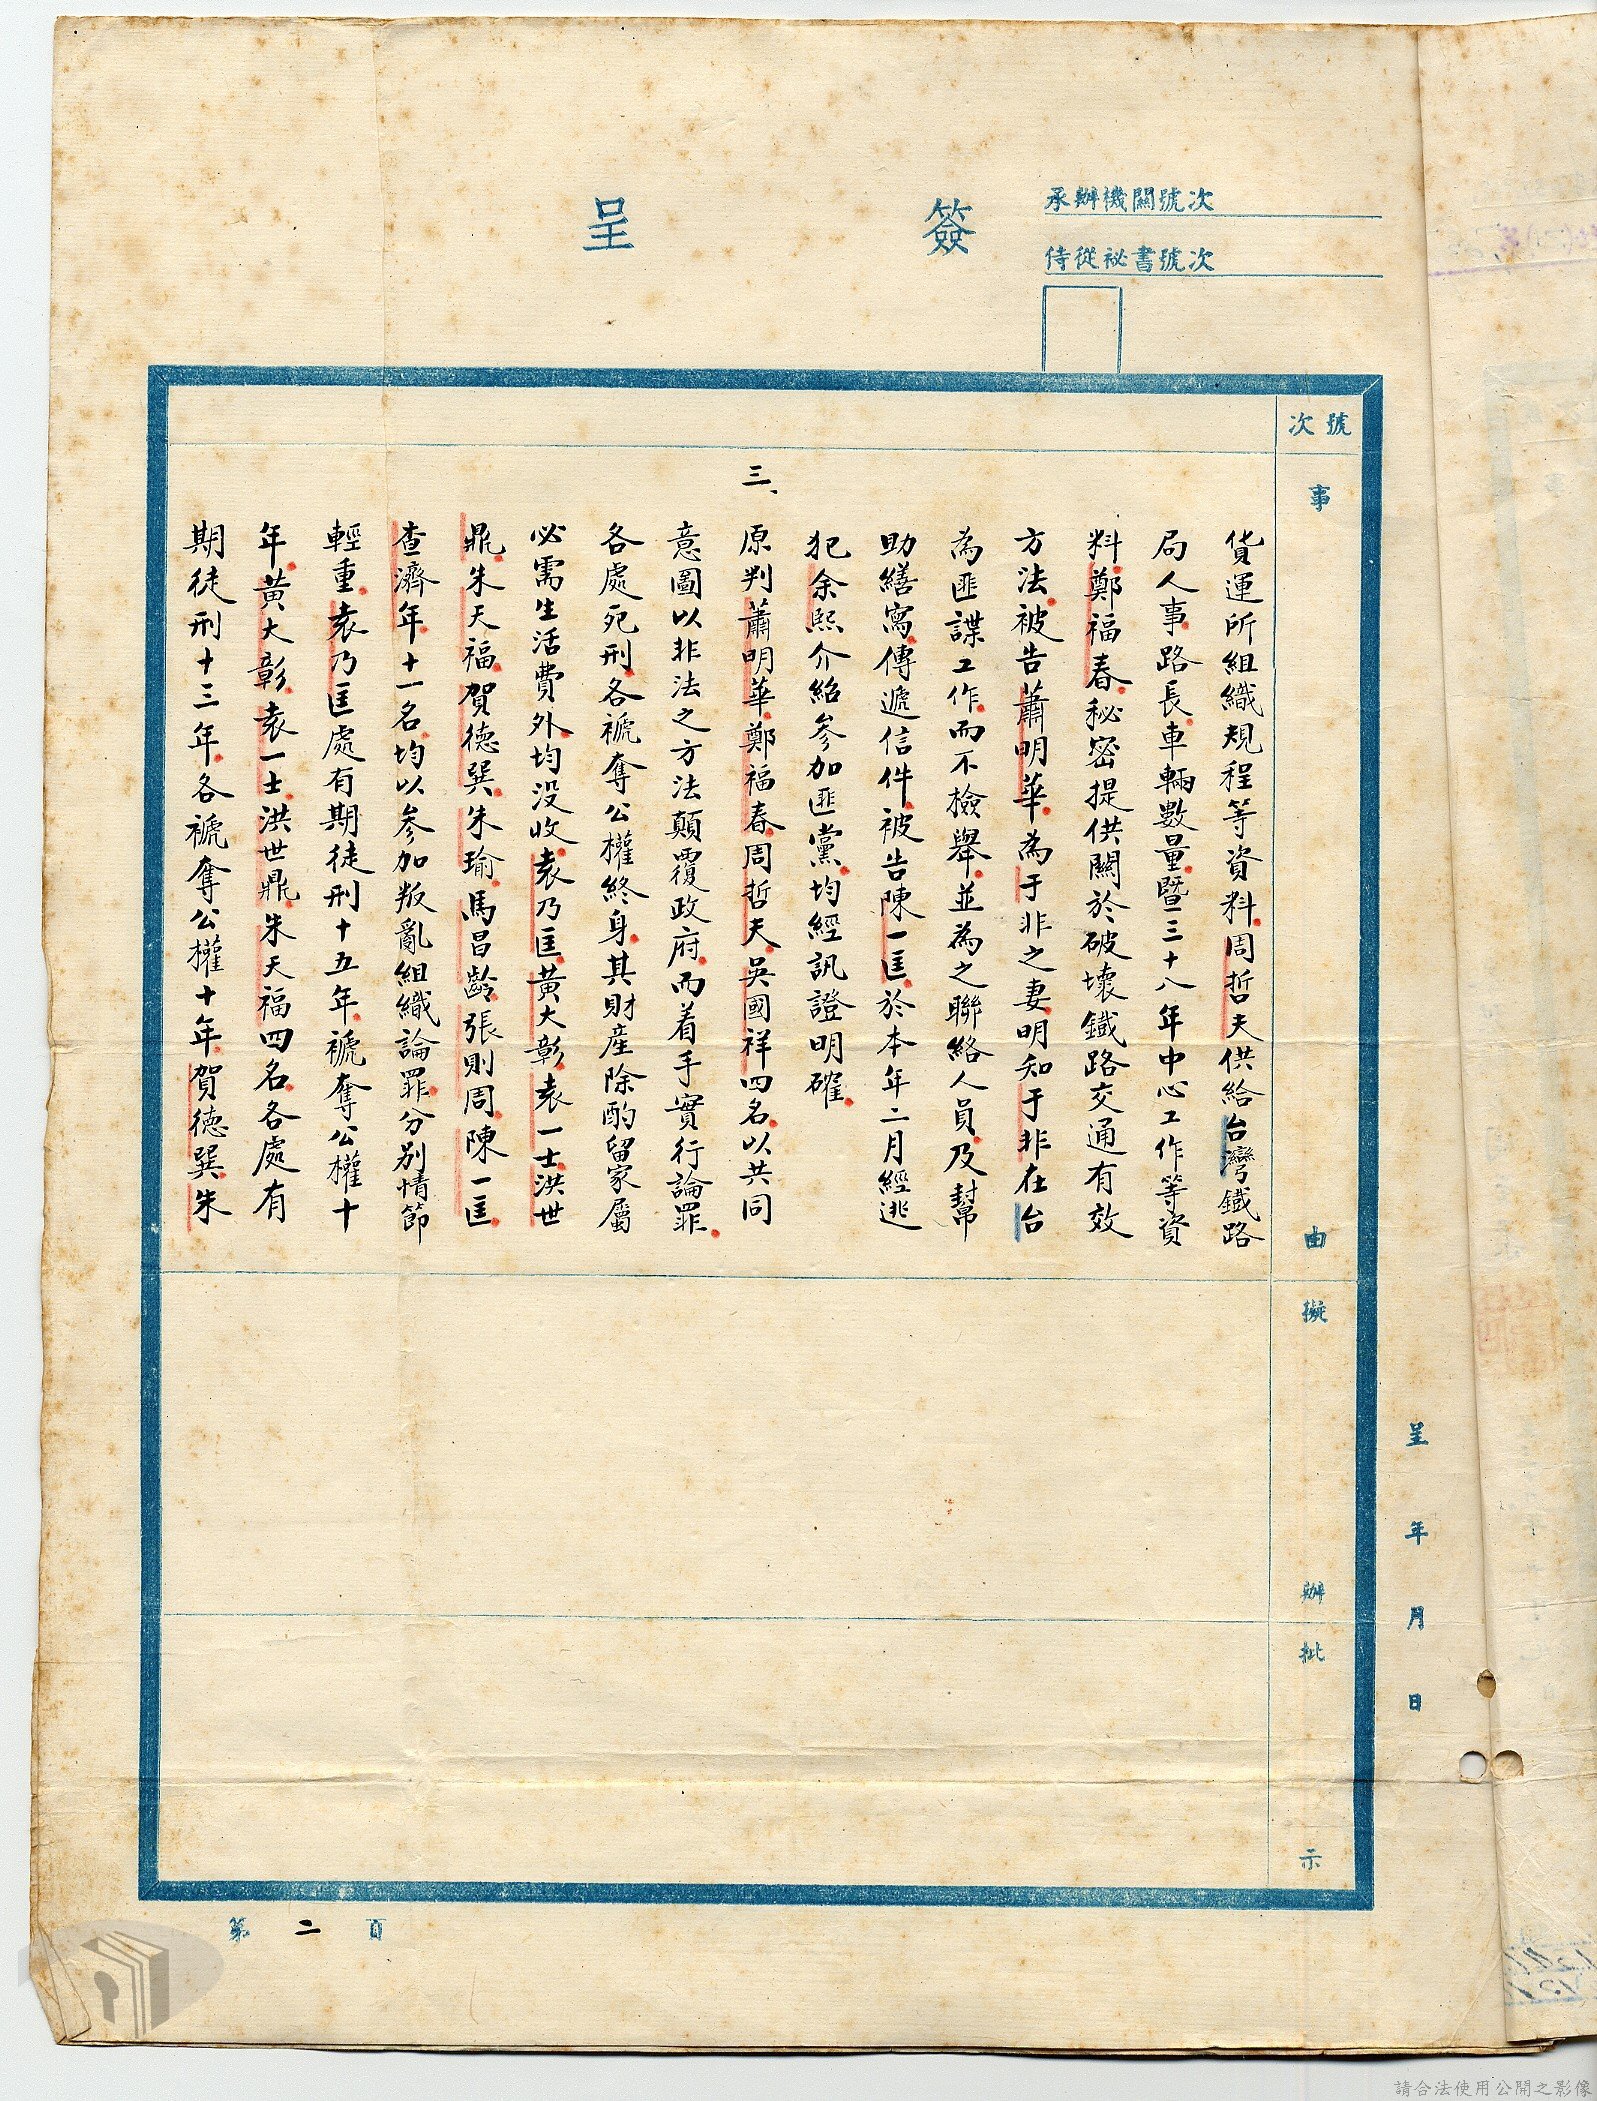 簽呈
承辦機關號次
侍從祕書號次
號次
事由
擬辦
批示
呈 年 月 日
貨運所組織規程等資料周哲夫供給台灣鐵路
局人事路長車輛數量暨三十八年中心工作等資
料鄭福春秘密提供關於破壞鐵路交通有效
方法被告蕭明華為于非之妻明知于非在台
為匪諜工作而不檢舉並為之聯絡人員及幫
助繕寫傳遞信件被告陳一匡於本年二月經逃
犯余熙介紹參加匪黨均經訊證明確
三、原判蕭明華鄭福春周哲夫吳國祥四名以共同
意圖以非法之方法顛覆政府而着手實行論罪
各處死刑各褫奪公權終身其財產除酌留家屬
必需生活費外均沒收袁乃匡黃大彰袁一士洪世
鼎朱天福賀德巽朱瑜馬昌齡張則周陳一匡
查濟年十一名均以參加叛亂組織論罪分別情節
輕重袁乃匡處有期徒刑十五年褫奪公權十
年黃大彰袁一士洪世鼎朱天福四名各處有
期徒刑十三年各褫奪公權十年賀德巽朱
第二頁
請合法使用公開之影像